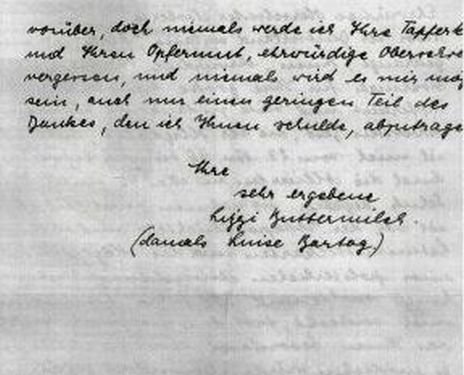 vorüber, doch niemals werde ich Ihre Tapferk
und Ihren Opfermut, ehrwürdige Oberschwe
vergessen, und niemals wird es mir mög
sein, auch nur einen geringen Teil des
Dankes, den ich Ihnen schulde, abzutrage
Ihre
sehr ergebene
Lizzi Buttermilch
(damals Luise Bartog)